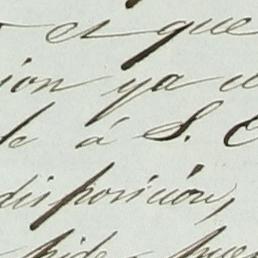 et que
ion ya
de á S.
disposicion,
pide